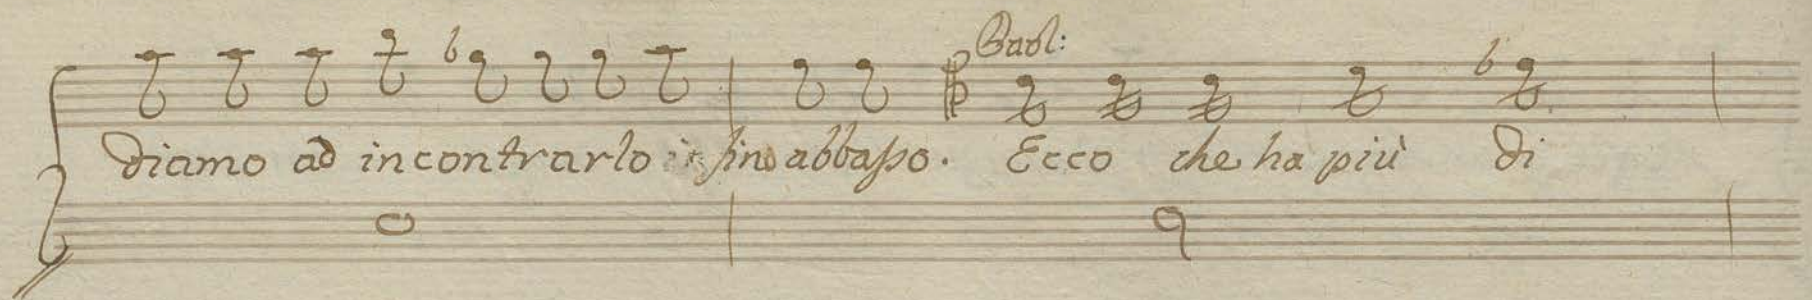 Paol:
diamo ad incontrarlo fino abbasso. Ecco che ha più di